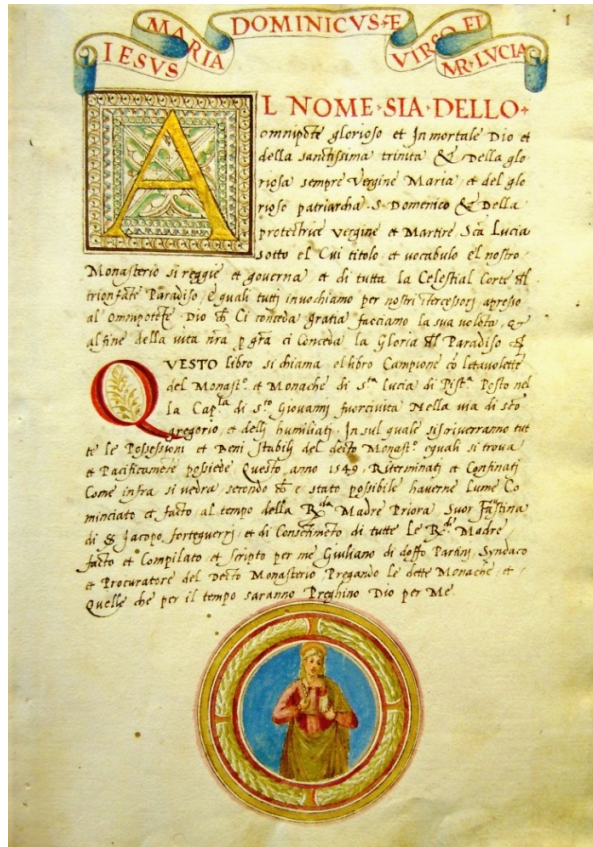 IESVS MARIA DOMINICVS·E VIRGO EI MR·LVCIA
1
AL NOME·SIA·DELLO·
omnipotẽ glorioso et Inmortale Dio et
della sanctissima trinita & Della glo
riosa sempre Vergine Maria et del glo
rioso patriarcha·S·Domenico & Della
protectrice Vergine et Martire Sc̃a Lucia
sotto el Cui titolo et vocabulo el nostro
Monasterio si reggie et governa et di tutta la Celestial Corte
trionfãte Paradiso, e quali tuttj invochiamo per nostri ĩtercessorj apresso
al Omnipotẽte Dio Ci conceda gratia facciamo la sua volõta, &
al fine della vita nr̃a p gr̃a ci Conceda la Gloria Paradiso
QVESTO libro si chiama el libro Campione cõ le tavolette
del Monast.º et Monache di s.ta Lucia di Pist.a Posto nel
la Cap.la di s.to Giovannj fuorcivita Nella via di sc̃o
gregorio et dellj humiliatj. In sul quale si scriverranno tut
te le Possessionj et Beni Stabilj del decto Monast.º e quali si trova
et Pacificamẽte possiede Questo anno 1549. Riterminatj et Confinatj
Come infra si vedra secondo e stato possibile haverne lume Co
minciato et facto al tempo della R.da Madre Priora Suor Faustina
di Jacopo forteguerrj et di Consentimẽto di tutte le R.de Madre
facto et Compilato et scripto per me Giuliano di doffo Partinj Syndaco
et Procuratore del Decto Monasterio Pregando le dette Monache et
Quelle che per il tempo saranno Preghino Dio per Me